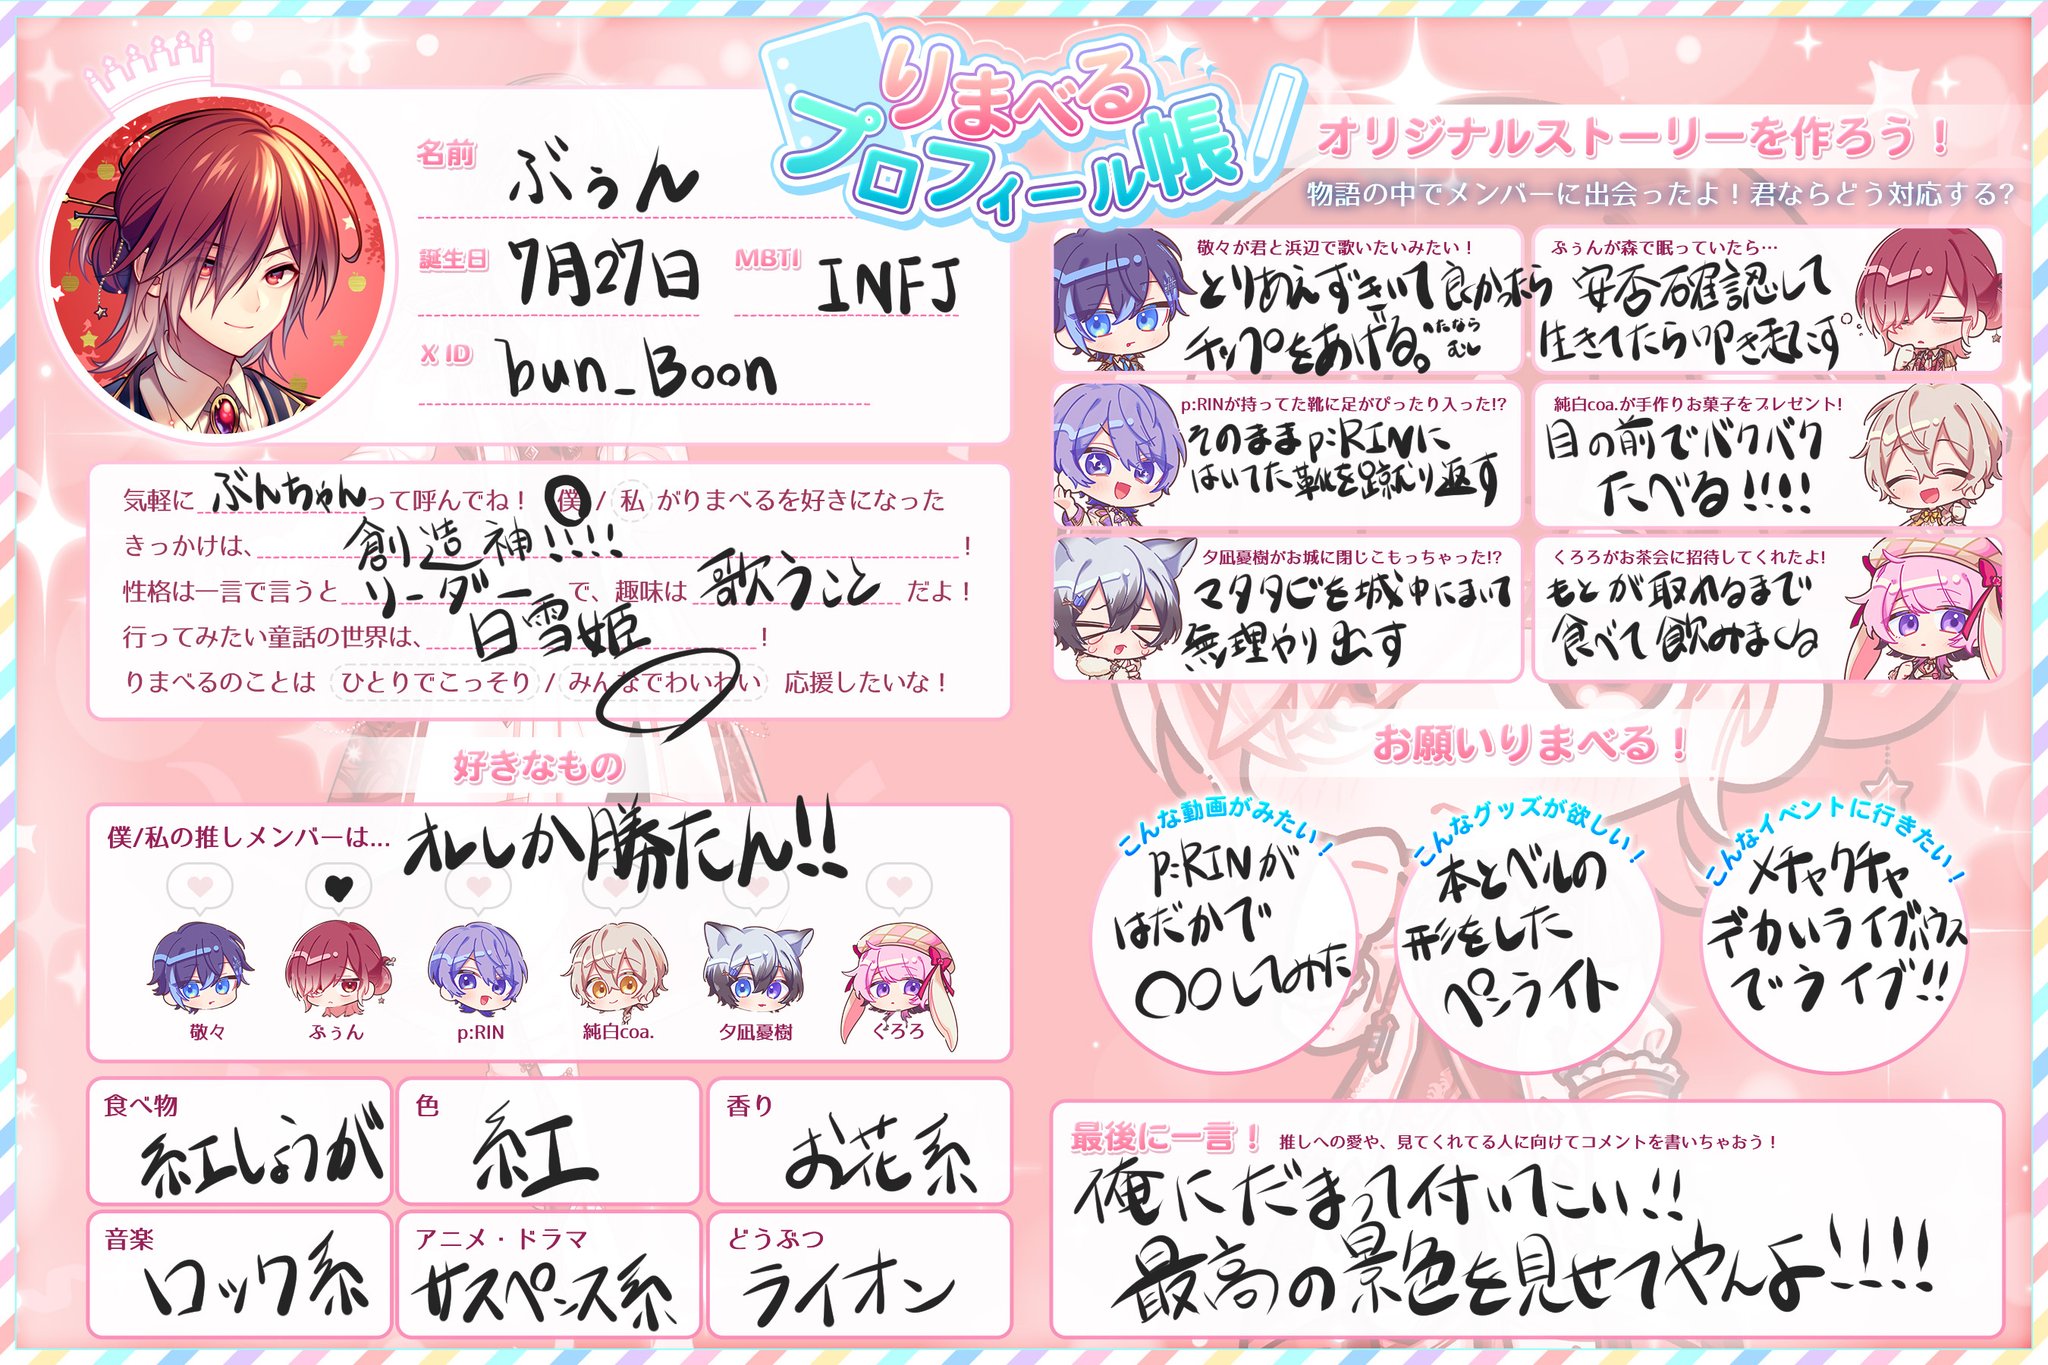 りまべる
プロフィール帳
名前 ぶぅん
誕生日 7月27日 MBTI INFJ
X ID bun_Boon
気軽に ぶんちゃん って呼んでね! 僕 / 私 がりまべるを好きになった
きっかけは、 創造神!!!! !
性格は一言で言うと リーダー で、趣味は 歌うこと だよ!
行ってみたい童話の世界は、 白雪姫 !
りまべるのことは ひとりでこっそり / みんなでわいわい 応援したいな!
好きなもの
僕/私の推しメンバーは... オレしか勝たん!!
敬々 ぶぅん p:RIN 純白coa. 夕凪憂樹 くろろ
食べ物
紅しょうが
色
紅
香り
お花系
音楽
ロック系
アニメ・ドラマ
サスペンス系
どうぶつ
ライオン
オリジナルストーリーを作ろう!
物語の中でメンバーに出会ったよ!君ならどう対応する?
敬々が君と浜辺で歌いたいみたい!
とりあえずきいて良かったら
チップをあげる。へたなら
むし
ぶぅんが森で眠っていたら…
安否確認して
生きてたら叩き起こす
p:RINが持ってた靴に足がぴったり入った!?
そのままp:RINに
はいてた靴を蹴り返す
純白coa.が手作りお菓子をプレゼント!
目の前でバクバク
たべる!!!!
夕凪憂樹がお城に閉じこもっちゃった!?
マタタビを城中にまいて
無理やり出す
くろろがお茶会に招待してくれたよ!
もとが取れるまで
食べて飲みまくる
お願いりまべる!
こんな動画がみたい!
p:RINが
はだかで
〇〇してみた
こんなグッズが欲しい!
本とベルの
形をした
ペンライト
こんなイベントに行きたい!
メチャクチャ
デカいライブハウス
でライブ!!
最後に一言! 推しへの愛や、見てくれてる人に向けてコメントを書いちゃおう!
俺にだまって付いてこい!!
最高の景色を見せてやんよ!!!!